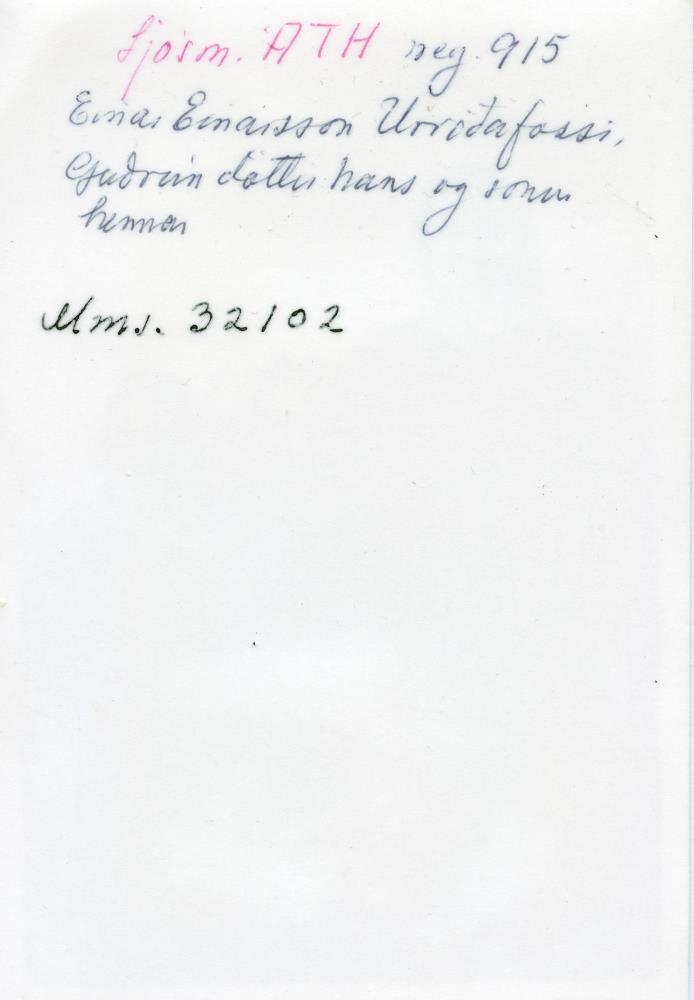 Ljósm. ATH neg. 915
Einar Einarsson Urriðafossi,
Guðrún dóttir hans og sonur
hennar
Mms. 32102